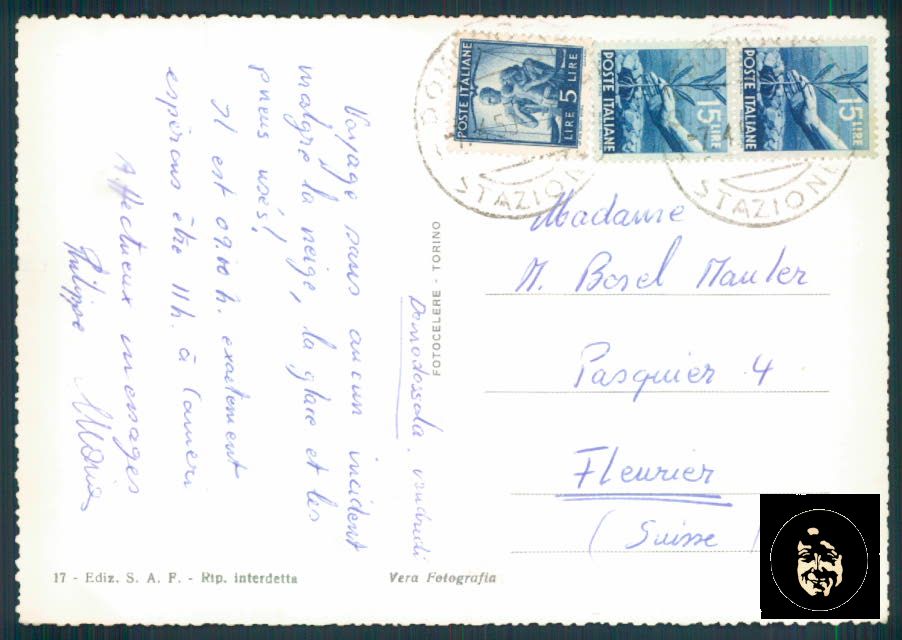 Domodossola, vendredi
Voyage sans aucun incident
malgré la neige, la glace et les
pneus usés!
Il est 09.00 h. exactement
espérons être 11 h. à Cameri
Affectueux messages
Philippe
FOTOCELERE - TORINO
POSTE ITALIANE
LIRE 5 LIRE
POSTE ITALIANE
15 LIRE
POSTE ITALIANE
15 LIRE
STAZIONE
STAZIONE
Madame
M. Bosel Mauler
Pasquier 4
Fleurier
(Suisse)
17 - Ediz. S. A. F. - Rip. interdetta
Vera Fotografia